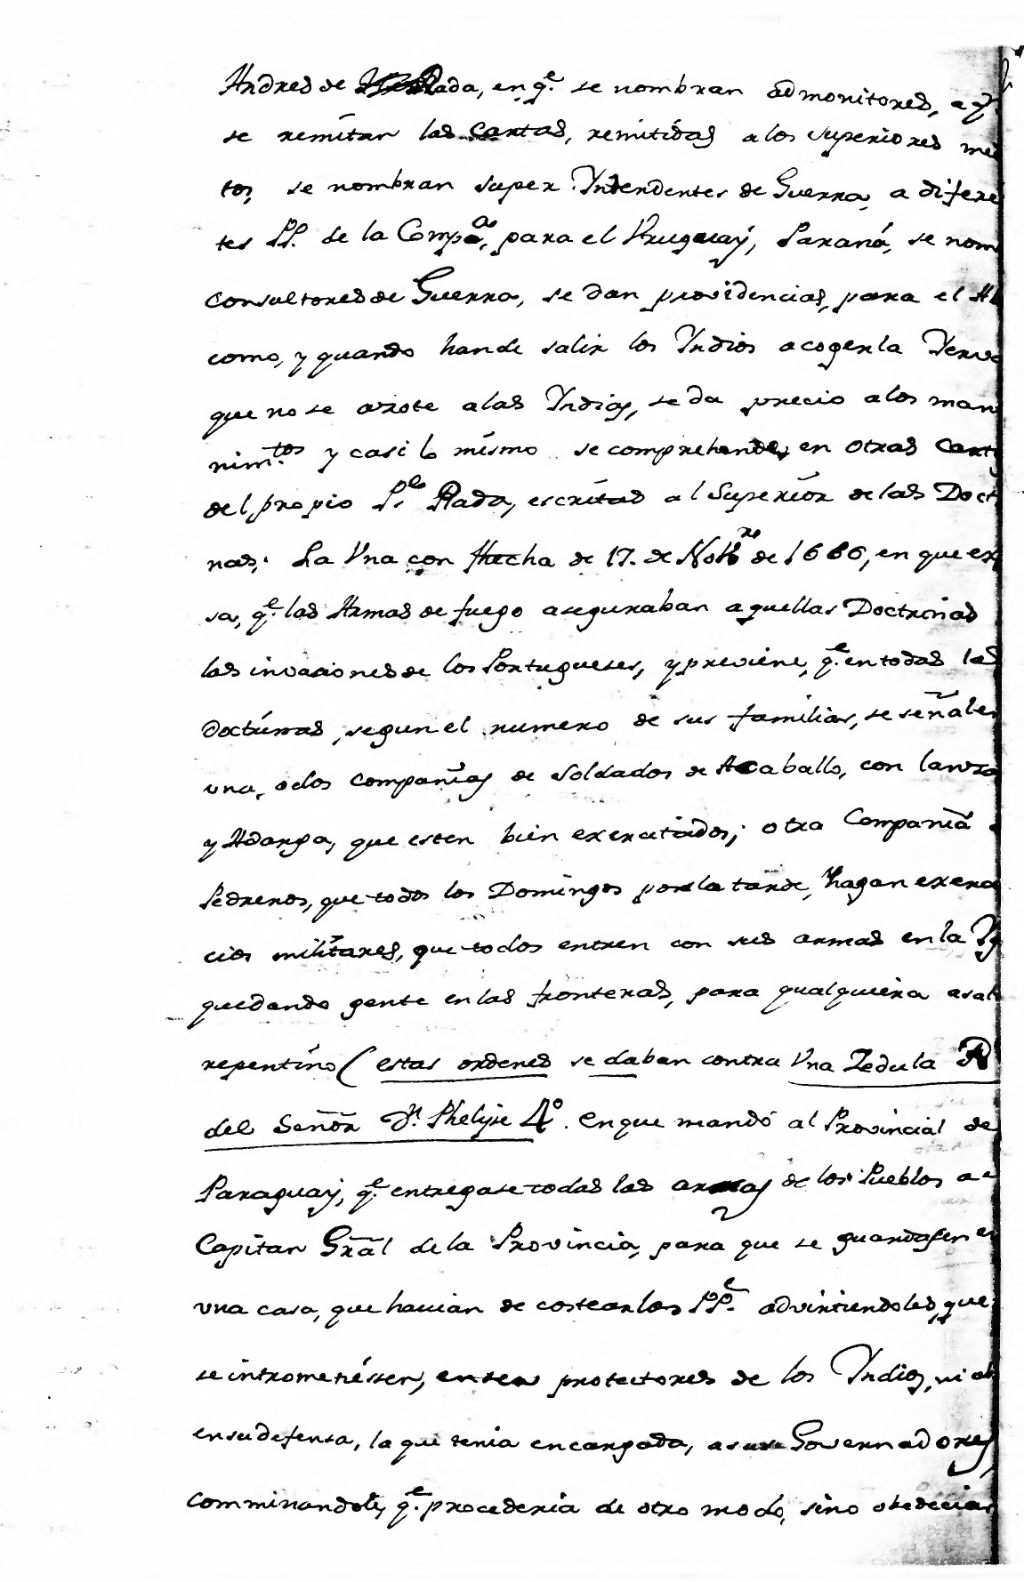 Andres de Rada, en q.e se nombran admonitores, a q.
se remitan las cartas, remitidas a los superiores
tos, se nombran super Yntendentes de Guerra, a difere
tes PP. de la Comp.as, para el Vruguaÿ, Paraná, se nom
consultores de Guerra, se dan providencias, para el
como, y quando hande salir los Yndios acogerla Yerva
que no se azote alas Yndias, se da precio a los man
nim.tos y casi lo mismo se comprehende, en otras Cart
del propio P.e Rada, escritas al Superiór de las Doct
nas: La Vna con fhecha de 17. de Nov.re de 1666, en que ex
sa, q.e las Armas de fuego aseguraban aquellas Doctrinas
las invaciones de los Portugueses, y previene, q.e en todas las
Doctrinas, segun el numero de sus familias, se señalen
una, o dos compañias de Soldados de Acaballo, con lanza
y Adarga, que esten bien exercitados; otra Compañia
Pedreros, que todos los Domingos por la tarde, hagan exerci
cios militares, que todos entren con sus armas en la Yg
quedando gente en las fronteras, para qualquiera asalt
repentino (estas ordenes se daban contra Vna Zedula R
del Señor Dn. Phelipe 4.º. En que mandó al Provincial de
Paraguaÿ, q.e entregase todas las armas de los Pueblos a
Capitan Grãl de la Provincia, para que se guardasen en
una casa, que havian de costear los PP.e advirtiendoles, que
se intrometiessen, en ser protectores de los Yndios, ni
en su defensa, la que tenia encargada, a sus Governadores,
comminandole, q.e procederia de otro modo, sino obedecias